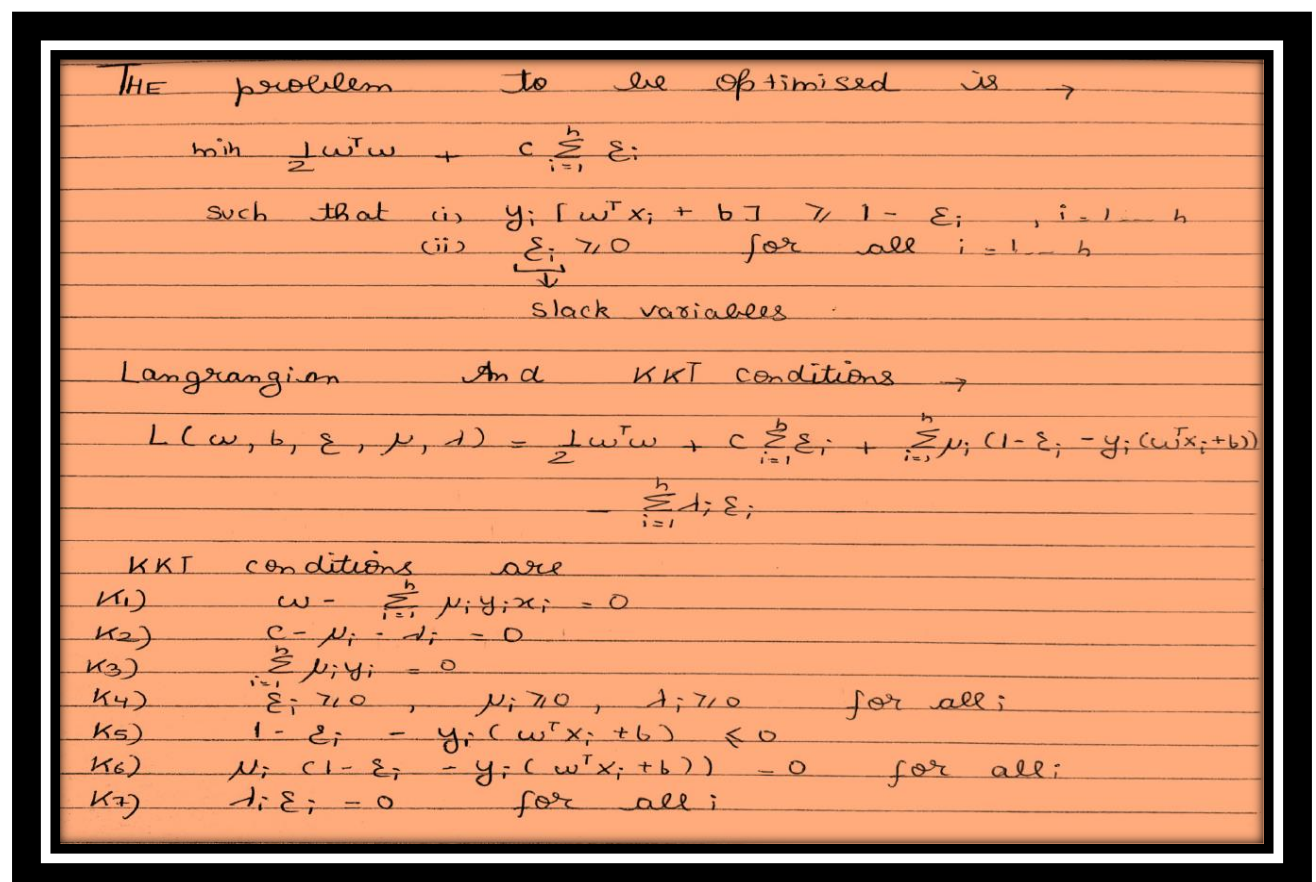 THE problem to be optimised is →
min 1/2 ω^T ω + c Σ_{i=1}^{n} ε_i
such that (i) y_i [ω^T x_i + b] ≥ 1 - ε_i , i = 1 ... n
(ii) ε_i ≥ 0 for all i = 1 ... n
↓
Slack variables
Langrangian And KKT conditions →
L(ω, b, ε, μ, λ) = 1/2 ω^T ω + c Σ_{i=1}^{n} ε_i + Σ_{i=1}^{n} μ_i (1 - ε_i - y_i (ω^T x_i + b))
- Σ_{i=1}^{n} λ_i ε_i
KKT conditions are
K1) ω - Σ_{i=1}^{n} μ_i y_i x_i = 0
K2) c - μ_i - λ_i = 0
K3) Σ_{i=1}^{n} μ_i y_i = 0
K4) ε_i ≥ 0 , μ_i ≥ 0 , λ_i ≥ 0 for all i
K5) 1 - ε_i - y_i (ω^T x_i + b) ≤ 0
K6) μ_i (1 - ε_i - y_i (ω^T x_i + b)) = 0 for all i
K7) λ_i ε_i = 0 for all i